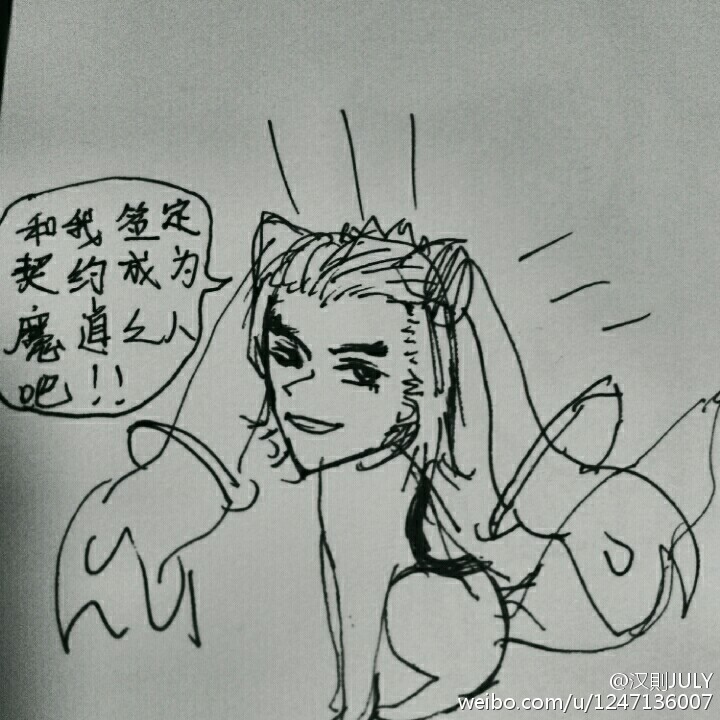 和我签定
契约成为
魔道之人
吧!!
@汉則JULY
weibo.com/u/1247136007